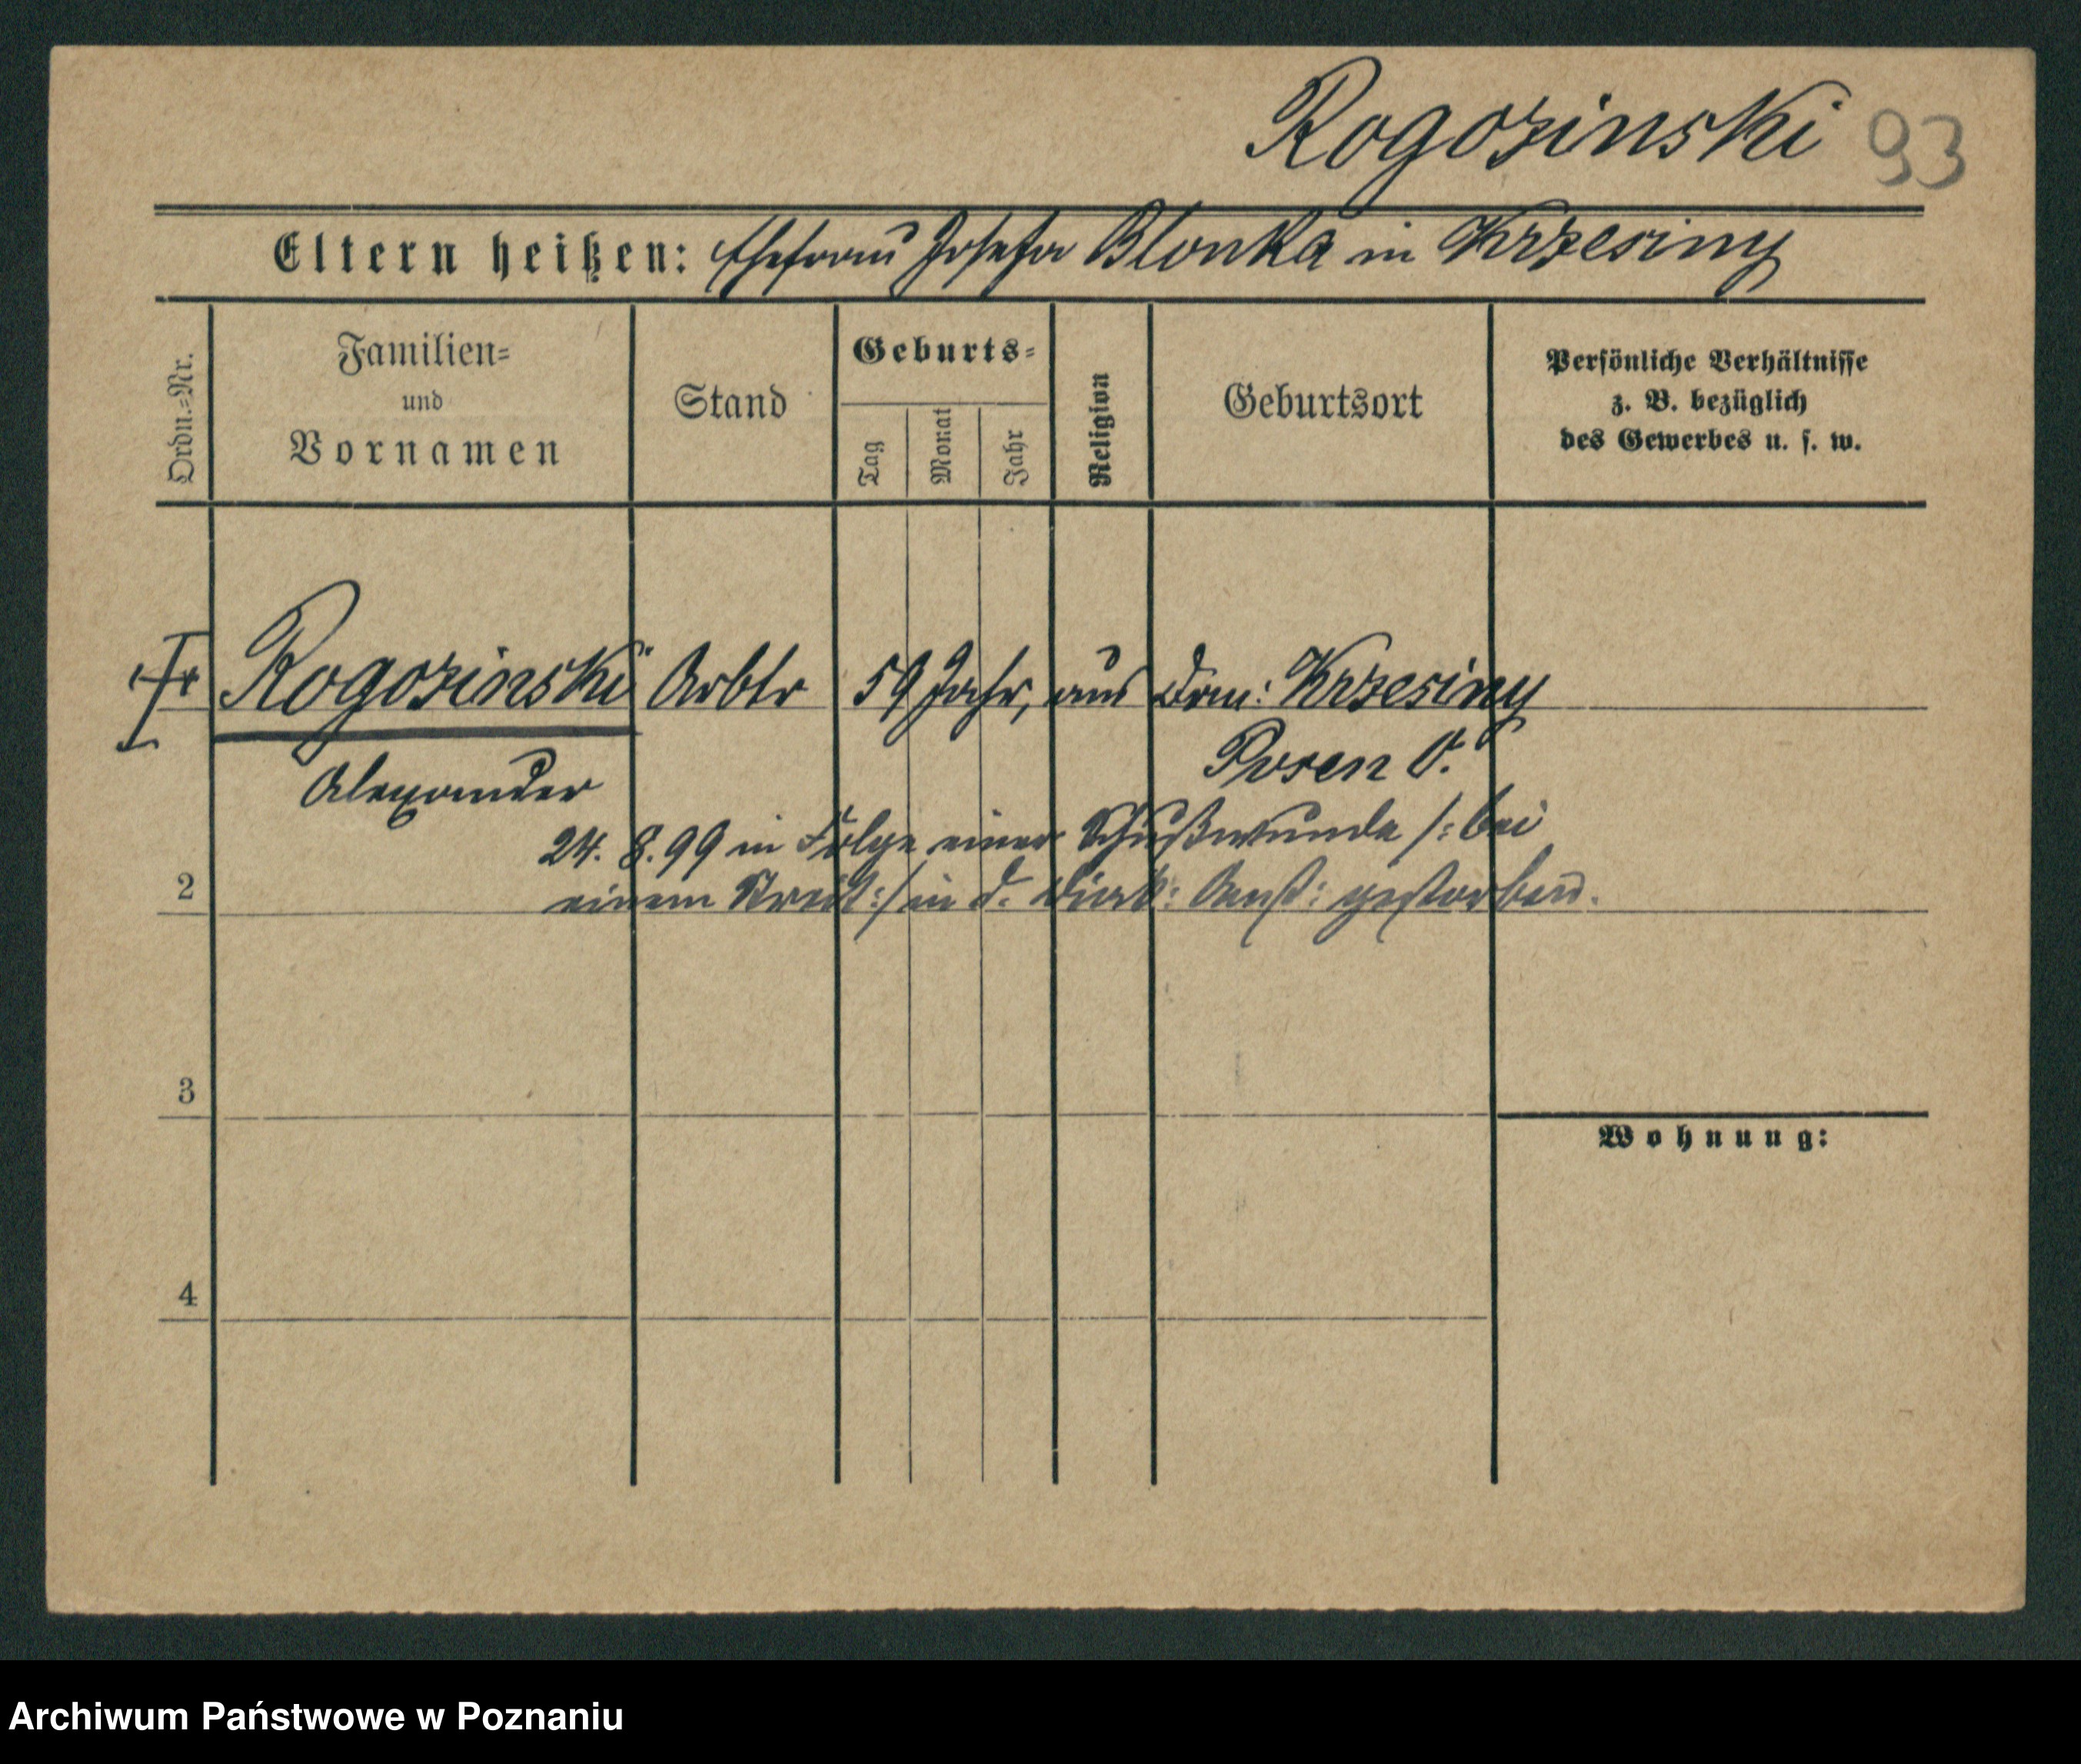 Rogozinski 93
Eltern heißen: Ehefrau Josefa Blonka in Krzesiny
Ordn.=Nr.
Familien=
und
Vornamen
Stand
Geburts=
Tag
Monat
Jahr
Religion
Geburtsort
Persönliche Verhältnisse
z. B. bezüglich
des Gewerbes u. s. w.
Rogozinski Arbtr 59 Jahr, aus Dom: Krzesiny
Posen O.
Alexander
24. 8. 99 in Folge einer Schußwunde /: bei
2
einem Streit :/ in d. Diak: Anst: gestorben.
3
Wohnung:
4
Archiwum Państwowe w Poznaniu